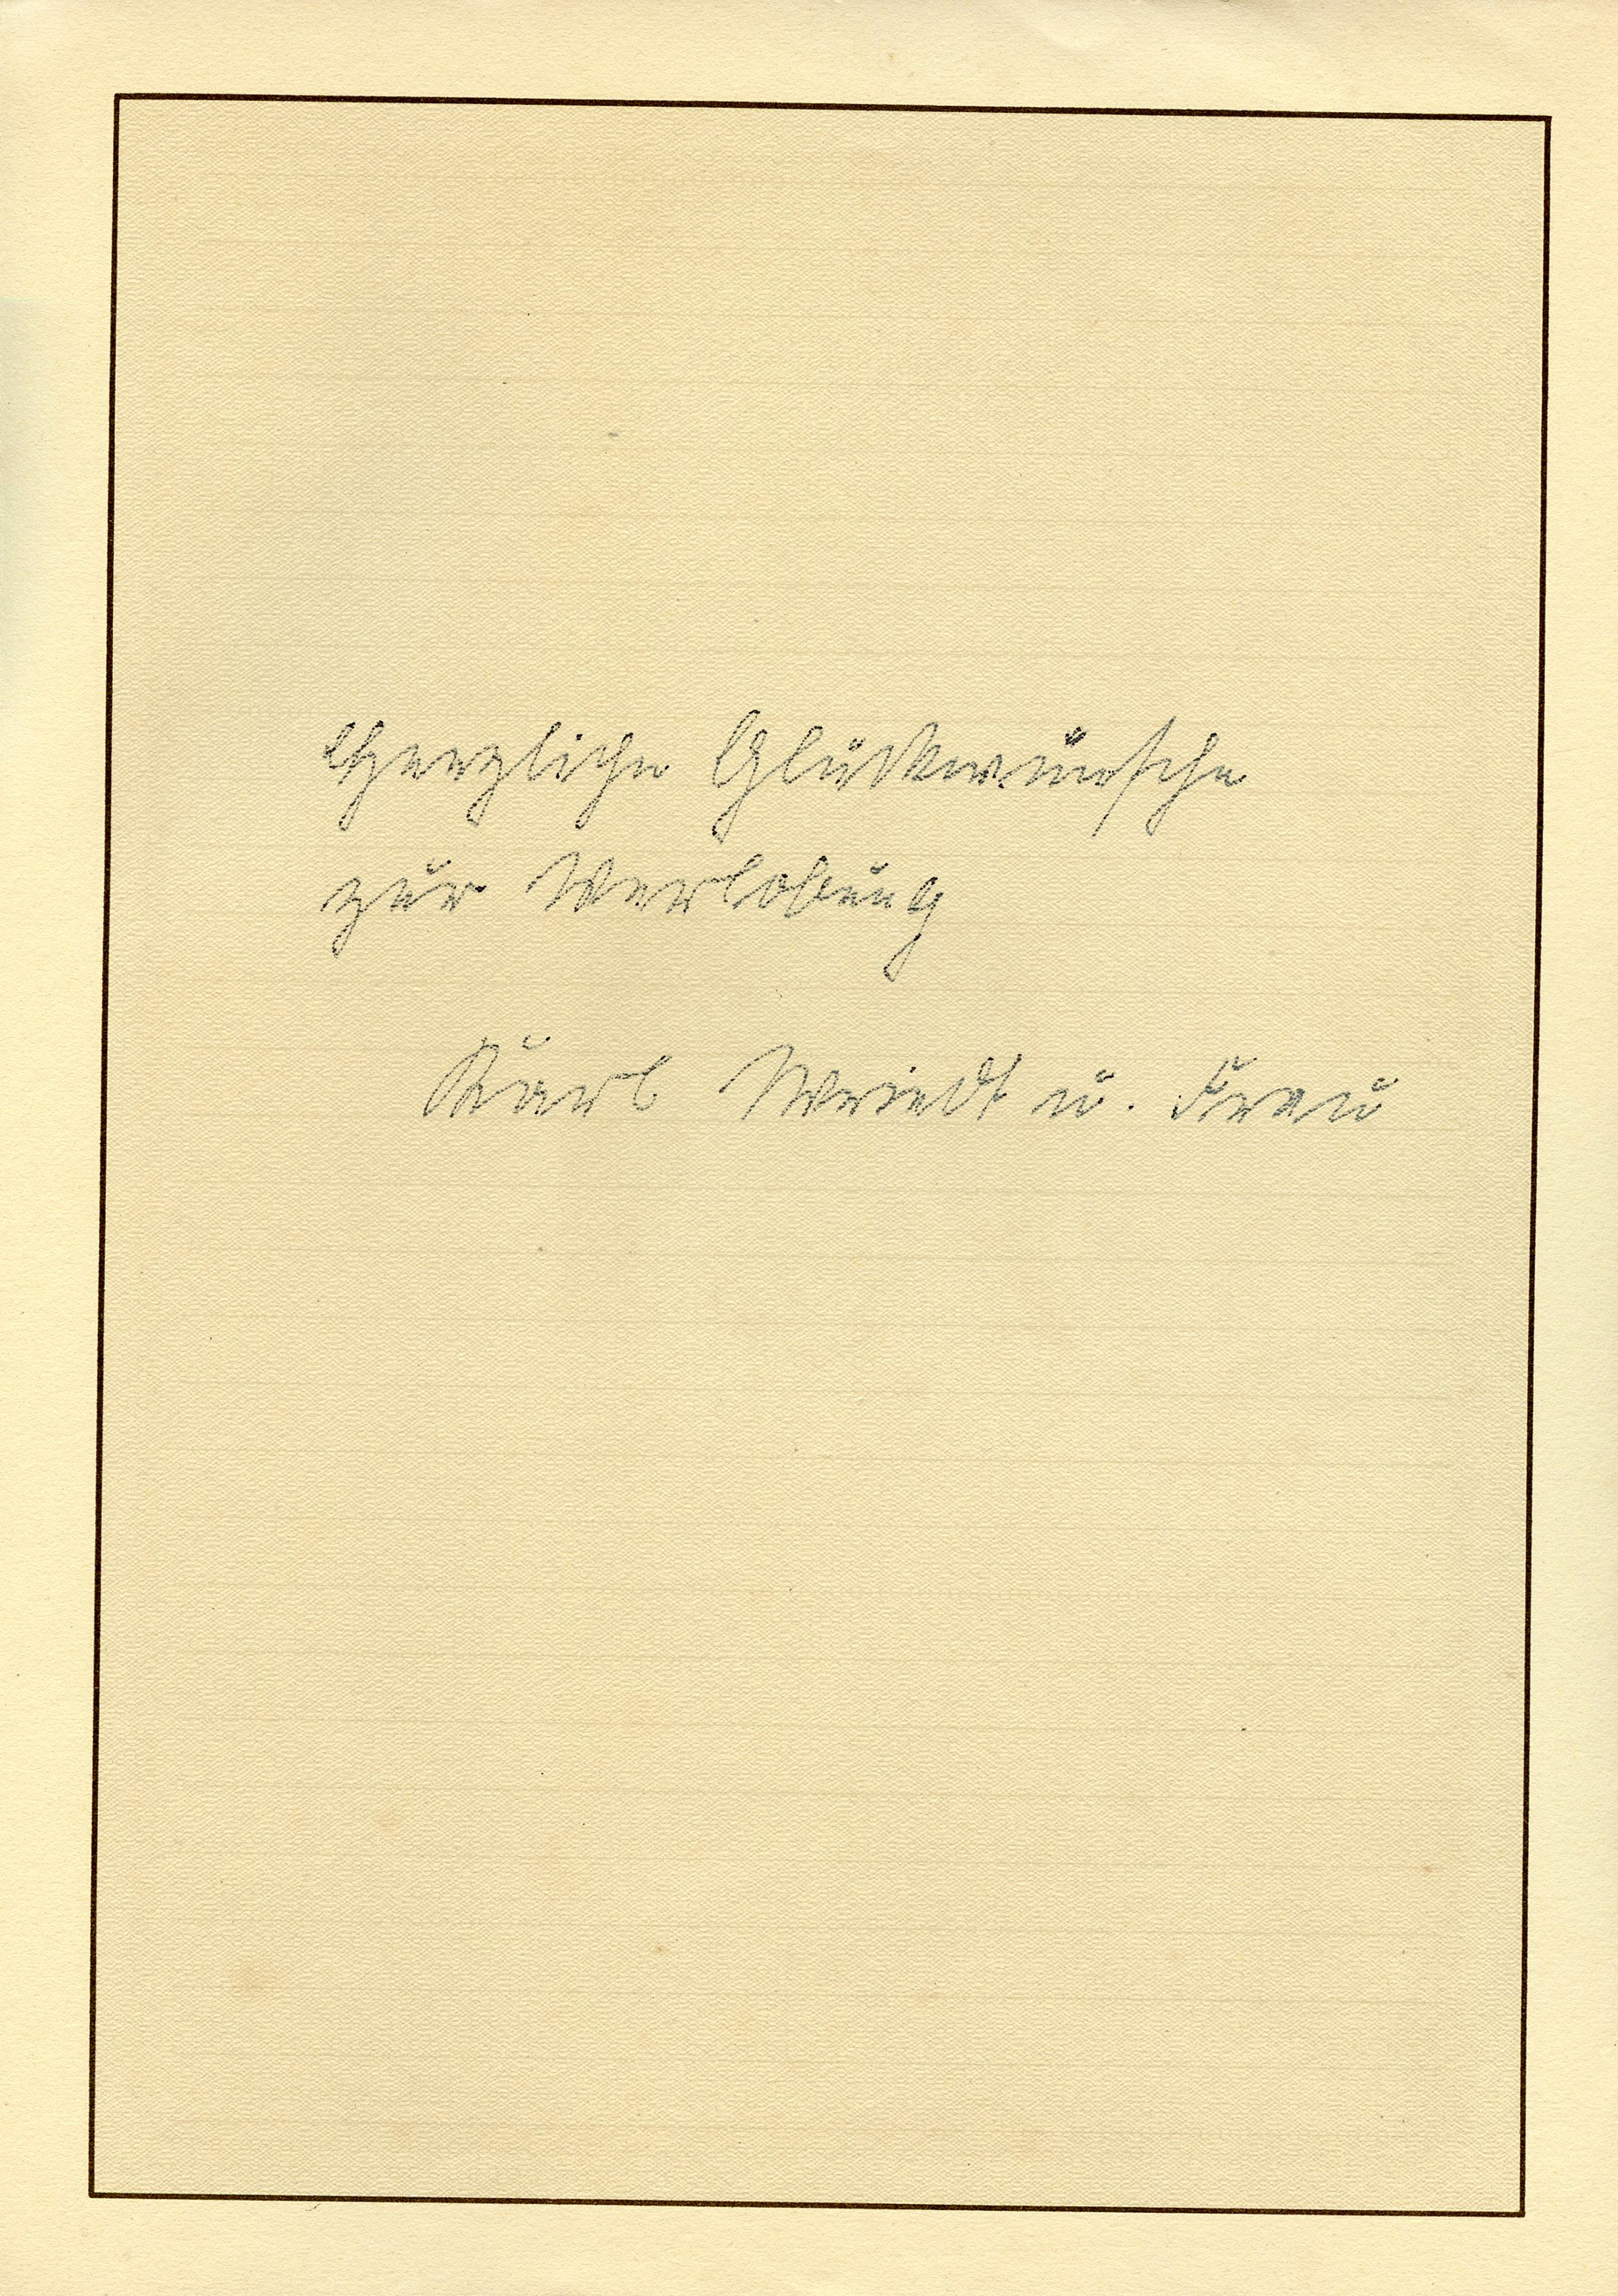 Herzliche Glückwünsche
zur Verlobung
Karl Wriedt u. Frau